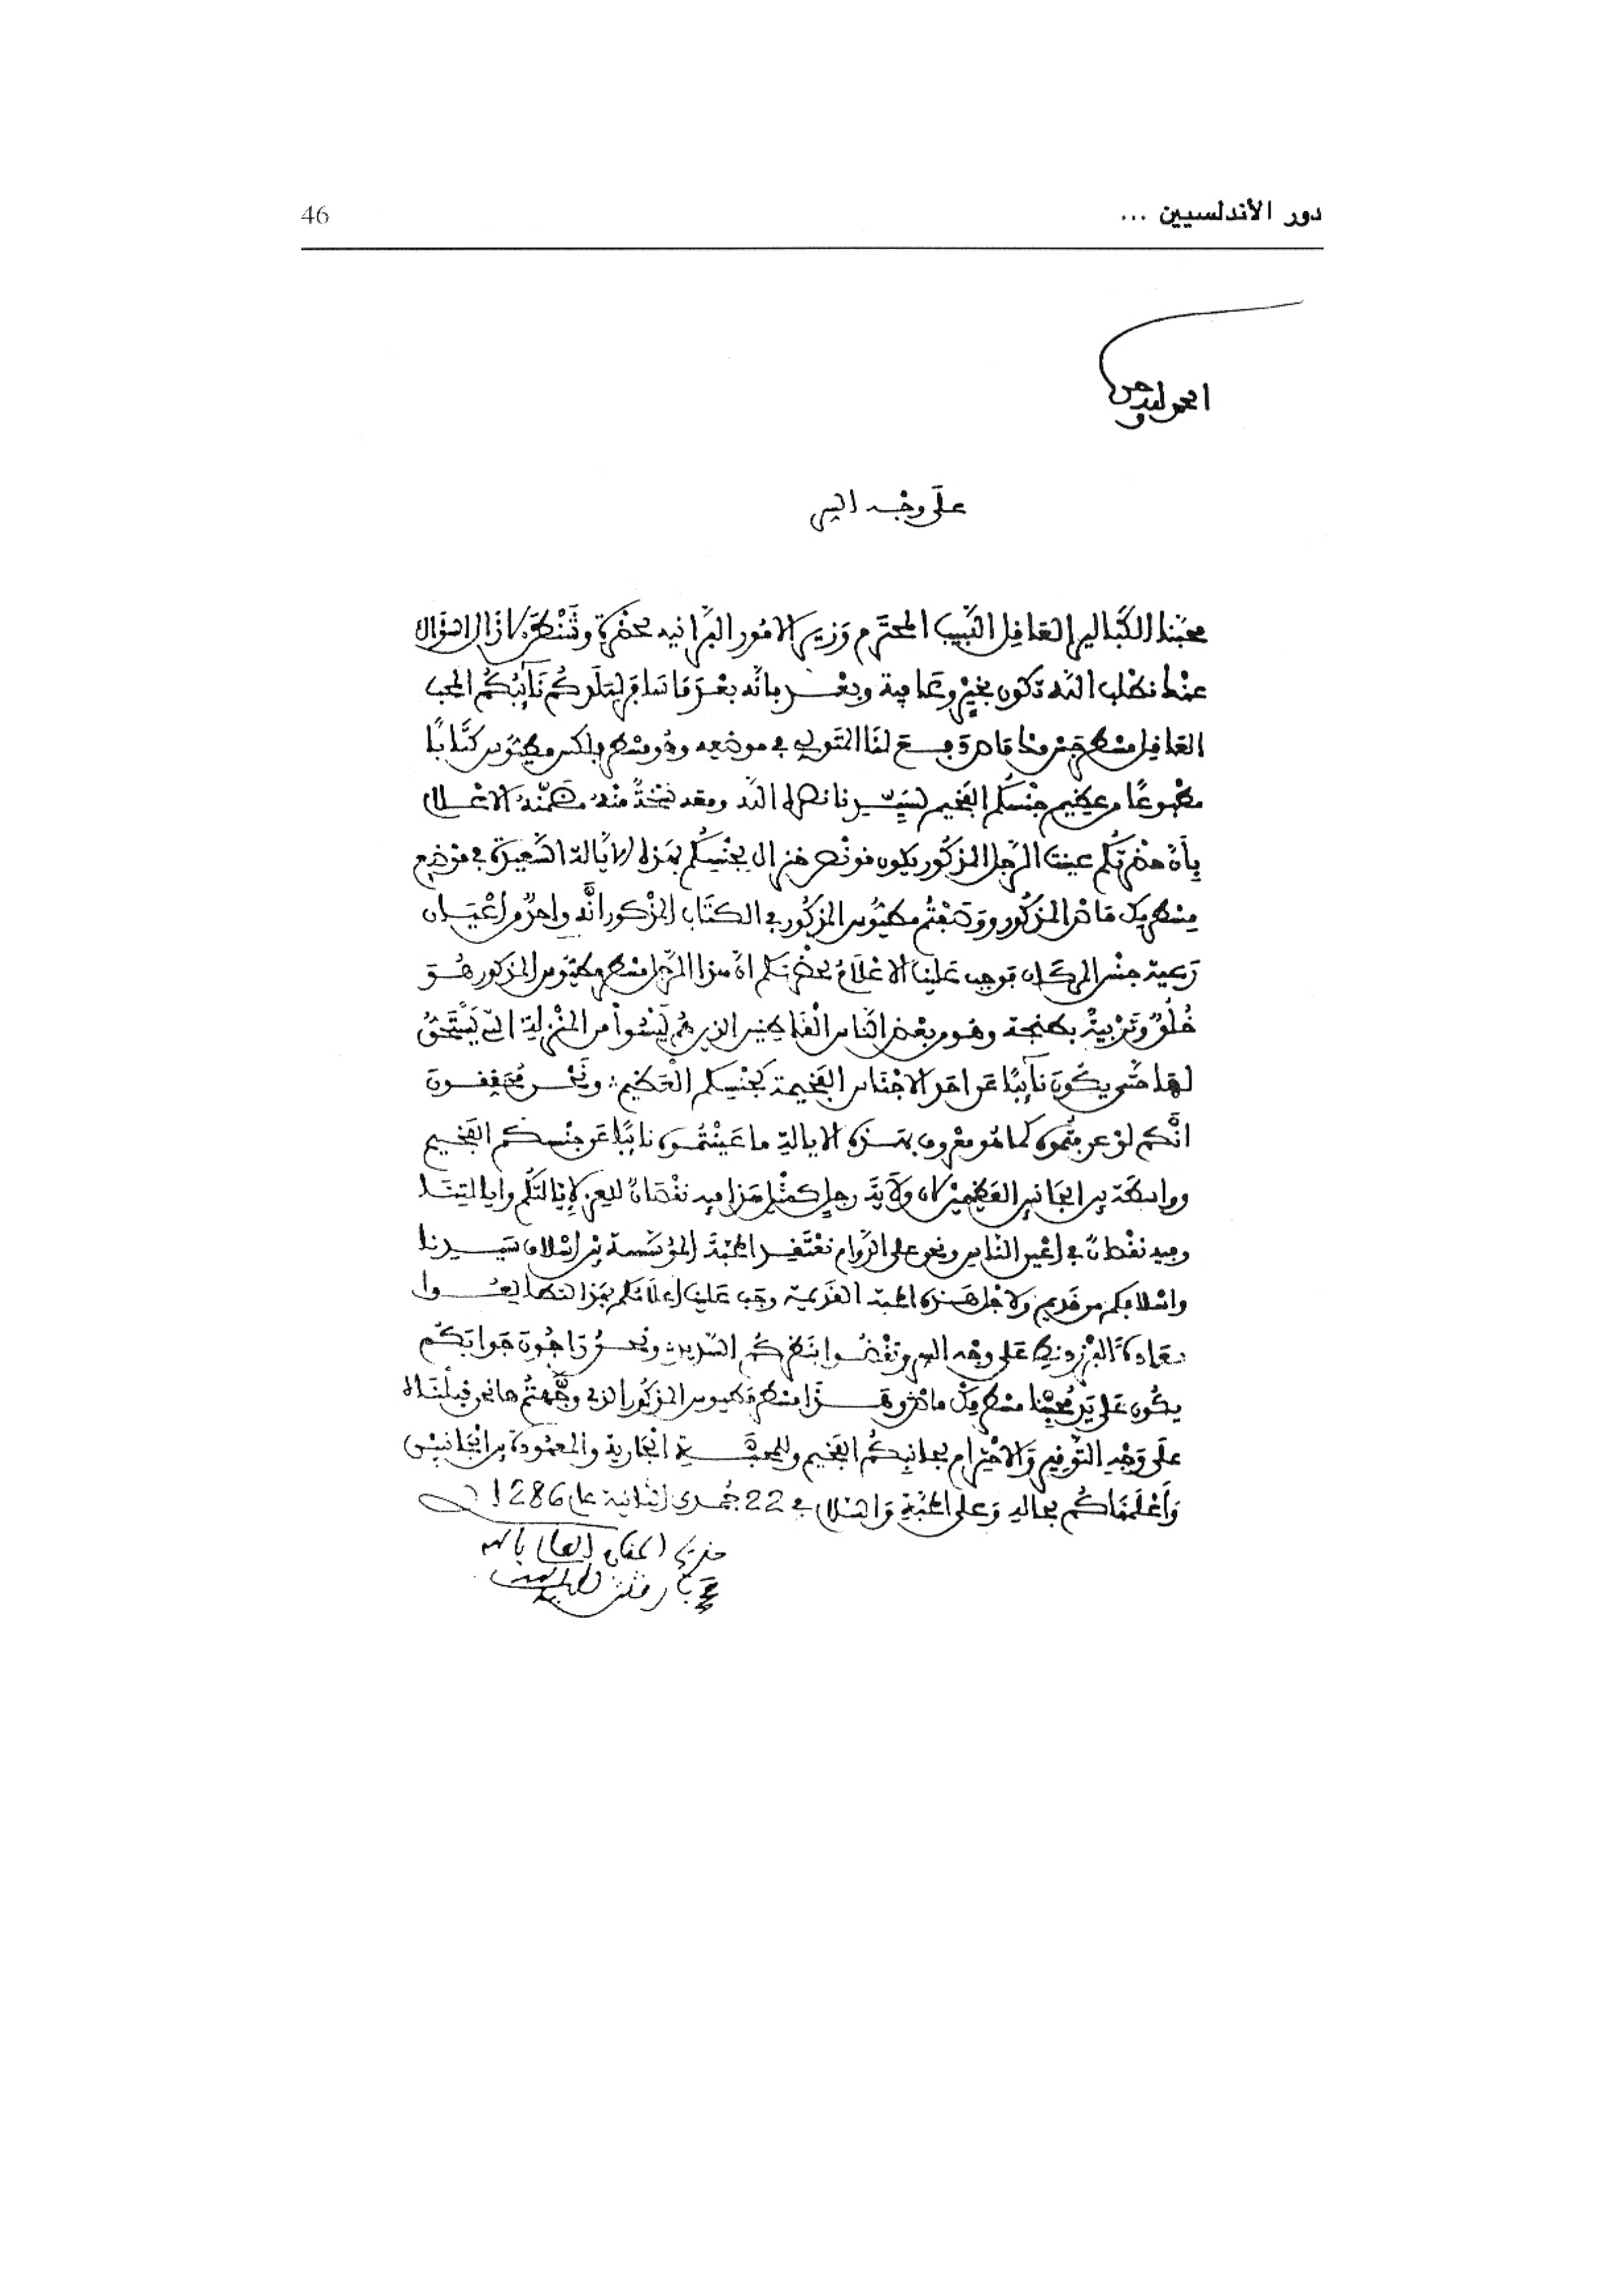 دور الأندلسيين ...
46
الحمد لله وحده
على وجه السر
محبنا الكبالير العاقل اللبيب المحترم وزير الامور البرانيه بحضرة
عنه نطلب الله تكون بخير وعافية وبعد بانه بعد ما سابر لبلدكم نايبكم المحب
العاقل مسطر جنرمك ماهر دبع لنا المتولي في موضعه وهو مسطر مكثيوس كتابا
مطبوعا من عظيم جنسكم الفخيم لسيدنا نصره الله ومعه نسخة منه مضمنه الاعلام
بان حضرتكم عينت الرجل المذكور يكون فونصر جنرال لجنسكم بهذه الايالة السعيدة في موضع
مسطر مك ماهر المذكور ووصفتم مكثيوس المذكور في الكتاب المذكور انه واحد من اعيان
رعية جنس المركان فوجب علينا الاعلام لحضرتكم ان هذا الرجل مسطر مكثيوس المذكور هو
خلق وتربية بطنجة وهو من بعض الناس القاطنين الذين هم ليسوا من المنزلة التي يستحق
لها حتى يكون نايبا عن احد الاجناس الفخيمة كجنسكم العظيم ونحن محققون
انكم لو عرفتموه كما هو معروف بهذه الايالة ما عينتموه نايبا عن جنسكم الفخيم
وواسطة بين الجانبين العظيمين لان ولاية رجل كمثل هذا فيه نقصان للعز لايالتكم وايالتنا
وفيه نقصان في اعين الناس ونحن على الدوام نعتقد المحبة المؤسسة بين اسلاف سيدنا
واسلافكم من قديم ولاجل هذه المحبة القديمة وجب علينا اعلامكم بهذا
على وجه السر ونظركم السديد ونحن راجون جوابكم
يكون على يد محبنا مسطر مك ماهر وهذا مسطر مكثيوس المذكور الذي وجهتم ها نحن قبلناه
على وجه التوقير والاحترام بجانبكم الفخيم وللمحبة الجارية والمعهودة بين الجانبين
واعلمناكم بحاله وعلى المحبة والسلام في 22 جمدى الثانية عام 1286
خديم المقام العالي بالله
محمد بركاش لطف الله به